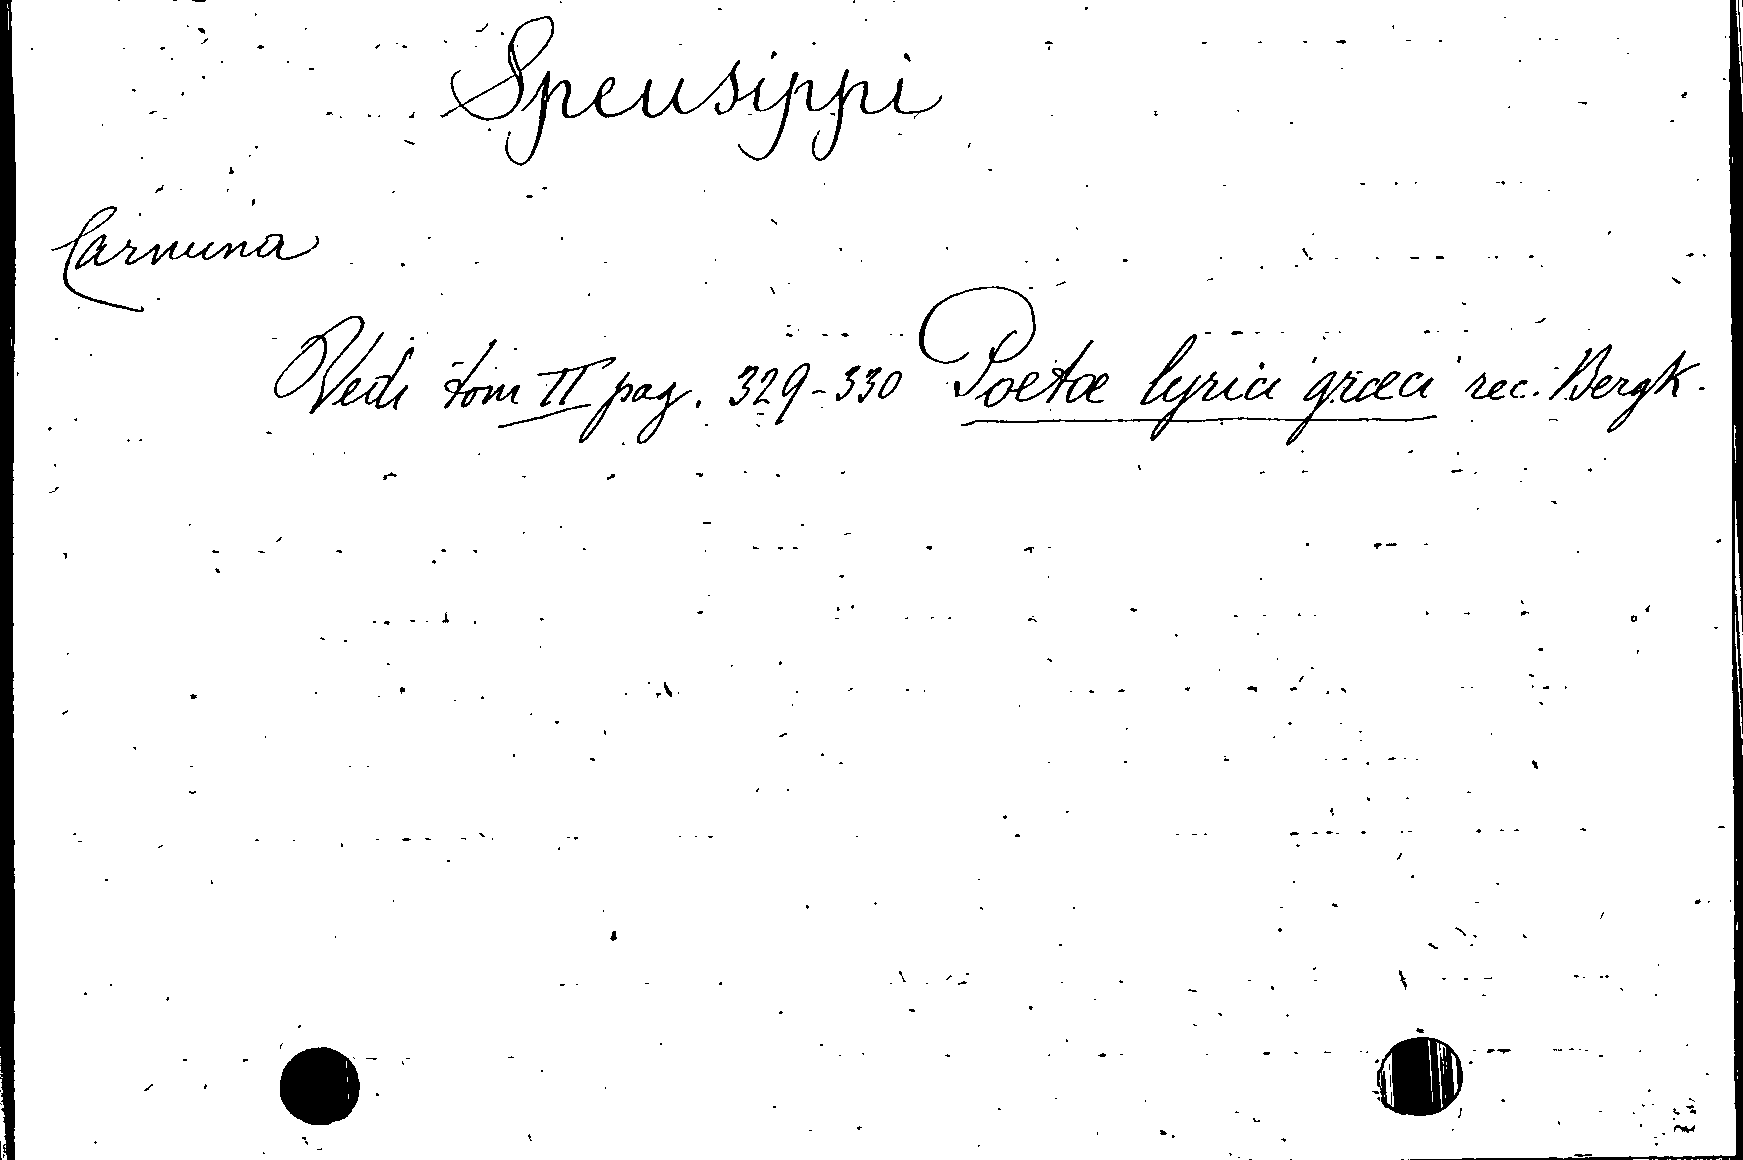 Speusippi
Carmina
Vedi tom II pag. 329-330 Poetæ lyrici græci rec. Bergk.